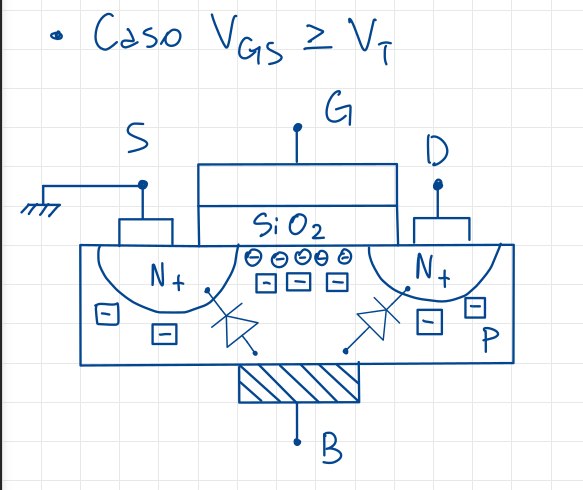 • Caso V_GS ≥ V_T
G
S
D
SiO₂
N+
N+
P
B